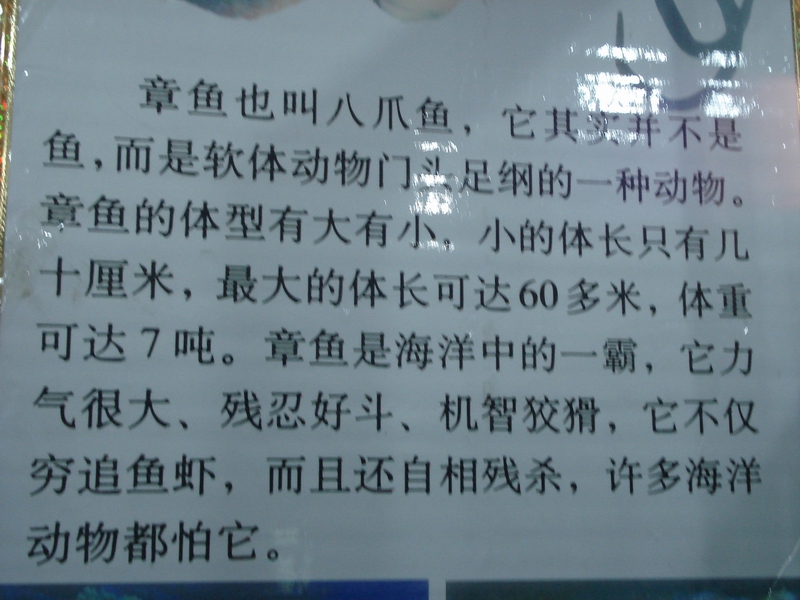 章鱼也叫八爪鱼，它其实并不是
鱼，而是软体动物门头足纲的一种动物。
章鱼的体型有大有小，小的体长只有几
十厘米，最大的体长可达60多米，体重
可达7吨。章鱼是海洋中的一霸，它力
气很大、残忍好斗、机智狡猾，它不仅
穷追鱼虾，而且还自相残杀，许多海洋
动物都怕它。